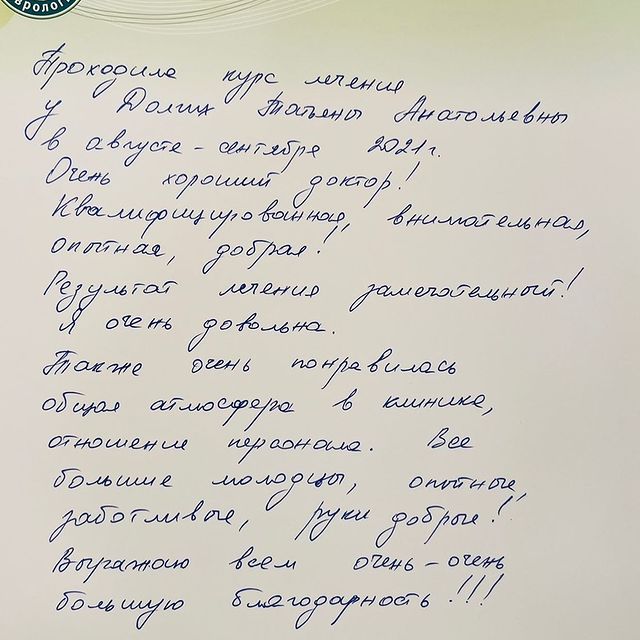 аролог
Проходила курс лечения
у Долгих Татьяны Анатольевны
в августе-сентябре 2021г.
Очень хороший доктор!
Квалифицированная, внимательная,
опытная, добрая!
Результат лечения замечательный!
Я очень довольна.
Также очень понравилась
общая атмосфера в клинике,
отношение персонала. Все
большие молодцы, опытные,
заботливые, руки добрые!
Выражаю всем очень-очень
большую благодарность!!!